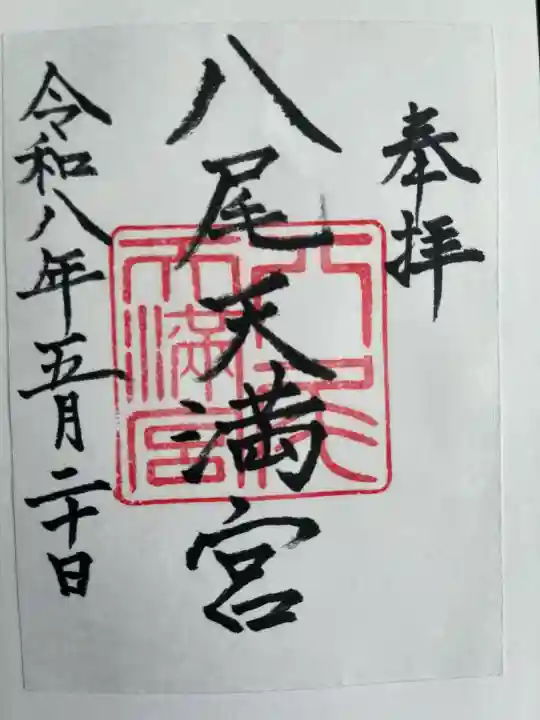 奉拝
八尾天満宮
令和八年五月二十日
八尾
天満宮